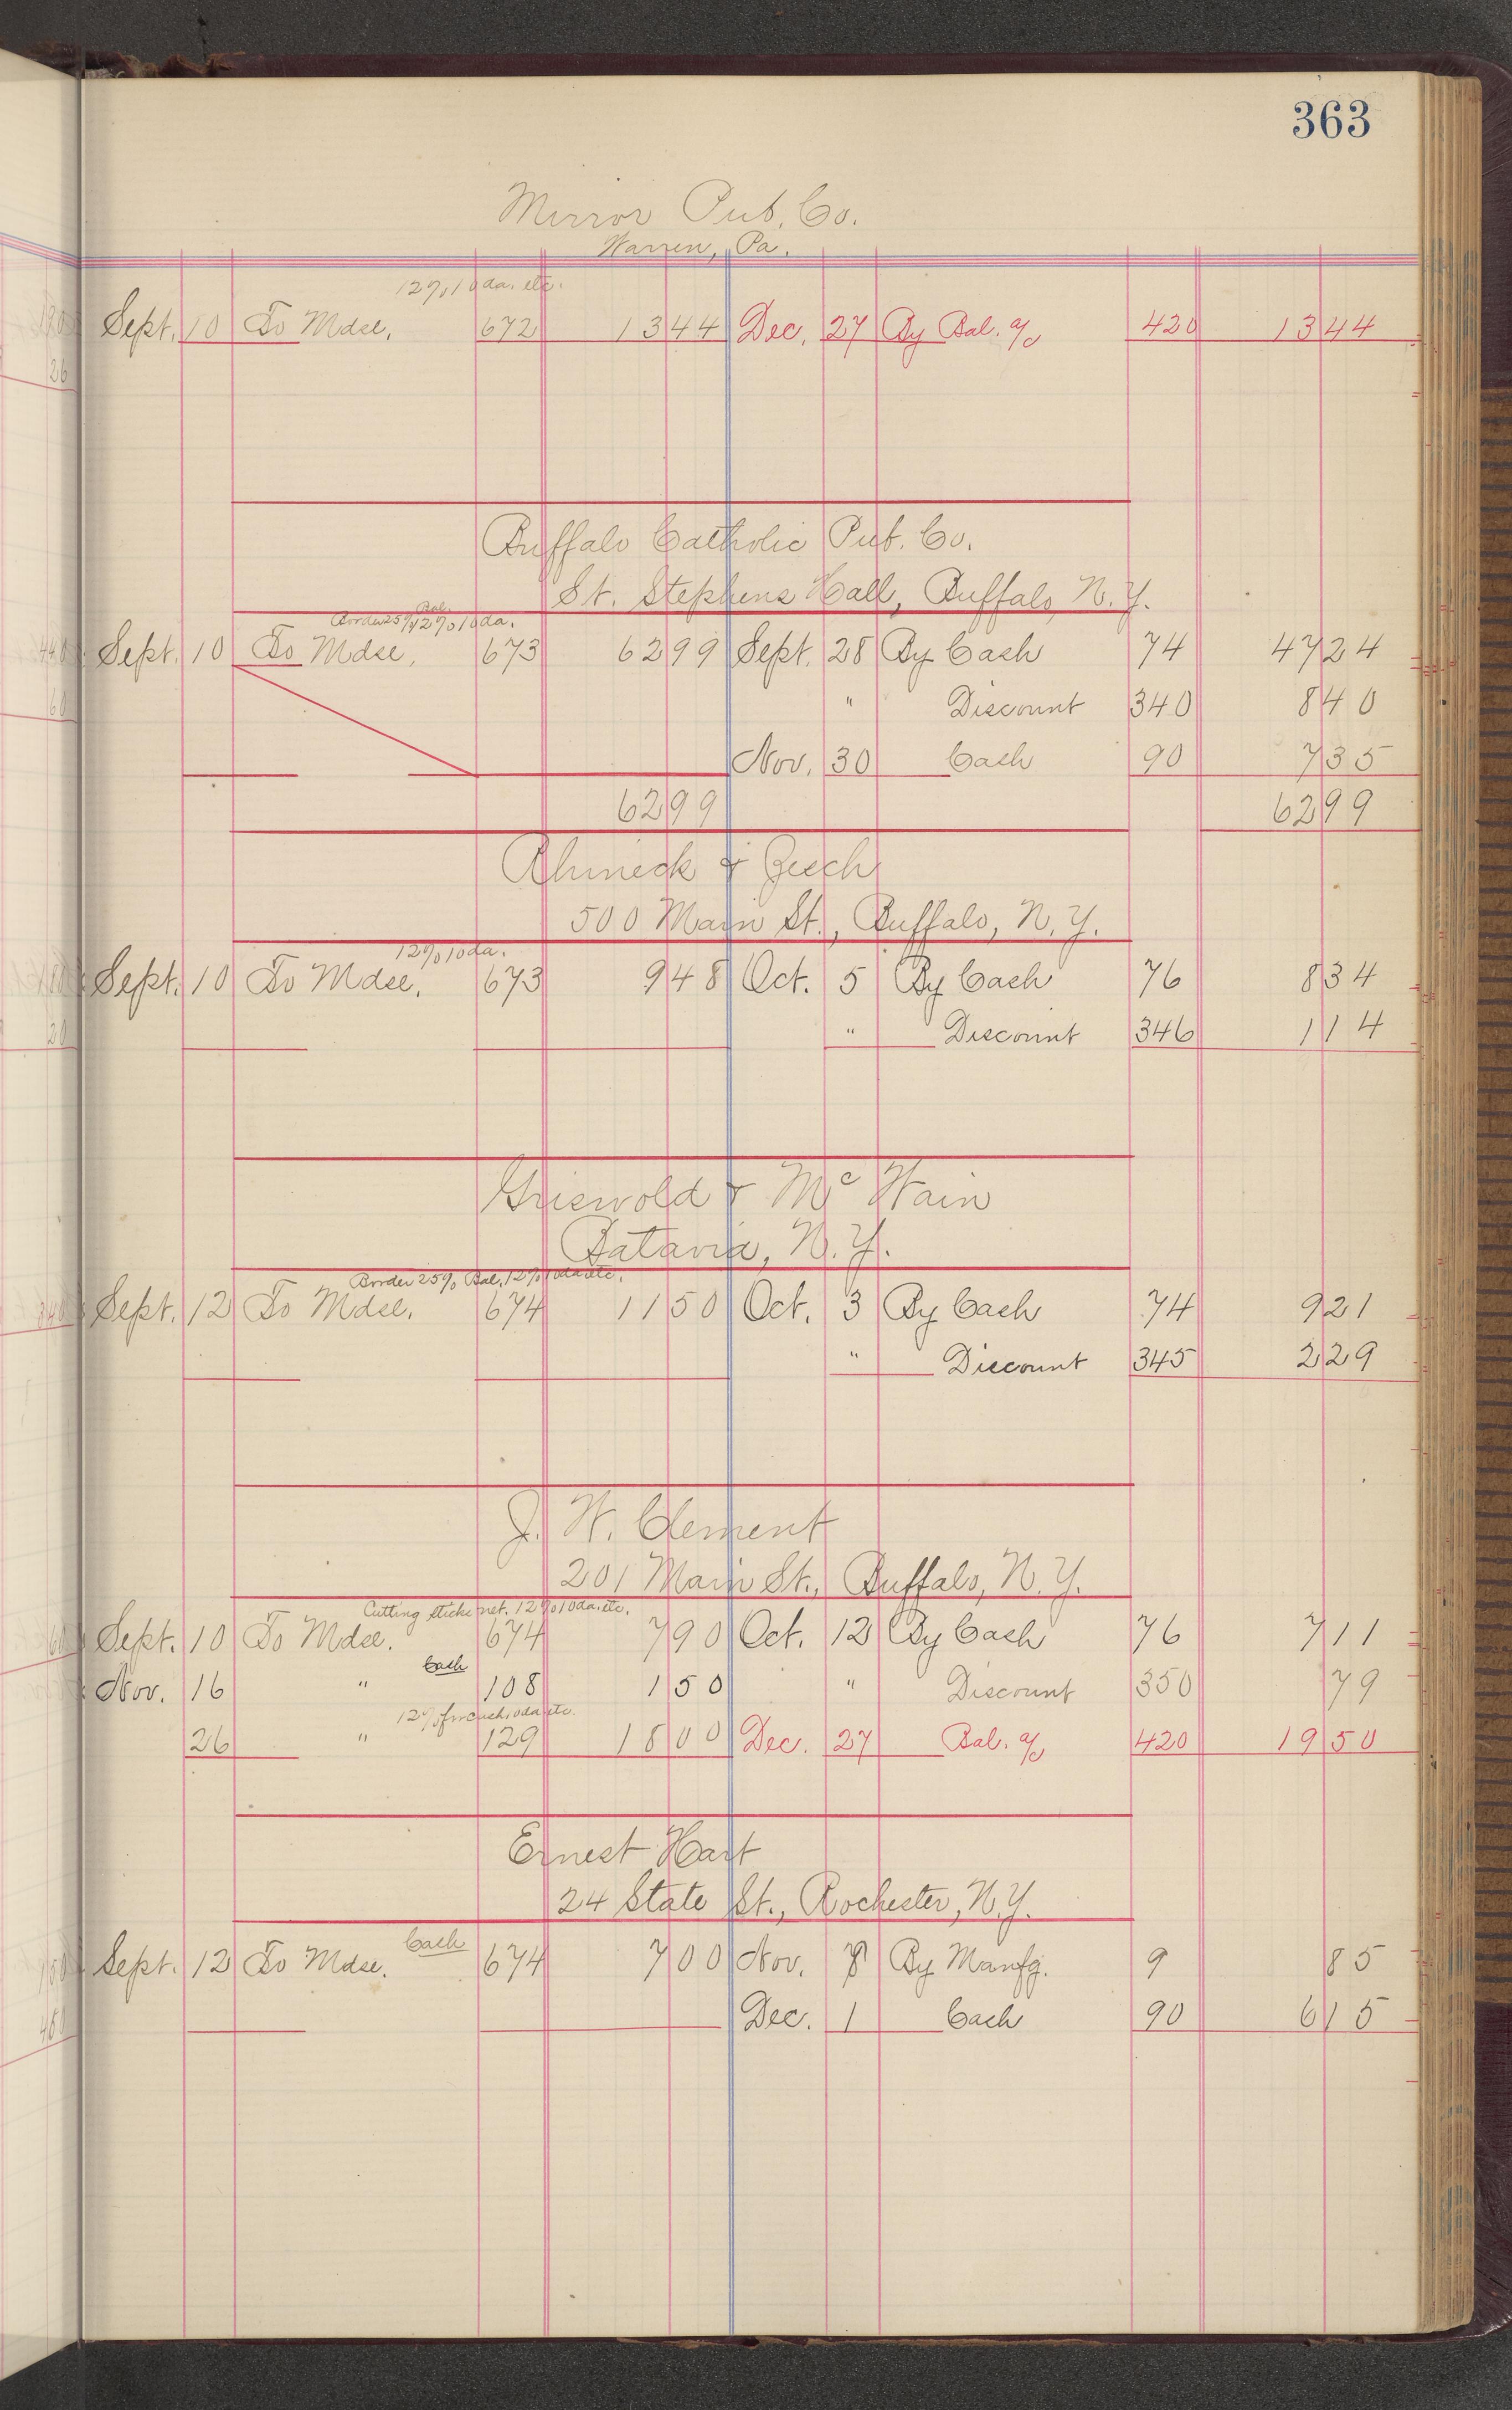 363
Mirror Pub. Co.
Warren, Pa.
12% 10 da. etc.
Sept. 10 To Mdse. 672 13 44 Dec. 27 By Bal. a/c 420 13 44
Buffalo Catholic Pub. Co.
St. Stephens Hall, Buffalo, N.Y.
Border 25% Bal. 12% 10 da.
Sept. 10 To Mdse. 673 62 99 Sept. 28 By Cash 74 47 24
" Discount 340 8 40
Nov. 30 Cash 90 7 35
62 99 62 99
& Zech
500 Main St., Buffalo, N.Y.
12% 10 da.
Sept. 10 To Mdse. 673 9 48 Oct. 5 By Cash 76 8 34
" Discount 346 1 14
Griswold & McWain
Batavia, N.Y.
Border 25% Bal. 12% 10 da. etc.
Sept. 12 To Mdse. 674 11 50 Oct. 3 By Cash 74 9 21
" Discount 345 2 29
J. W. Clement
201 Main St., Buffalo, N.Y.
Cutting sticks net. 12% 10 da. etc.
Sept. 10 To Mdse. 674 7 90 Oct. 12 By Cash 76 7 11
Cash
Nov. 16 " 108 1 50 " Discount 350 79
12% for cash 10 da etc.
26 " 129 18 00 Dec. 27 Bal. a/c 420 19 50
Ernest Hart
24 State St., Rochester, N.Y.
Cash
Sept. 12 To Mdse. 674 7 00 Nov. By Manfg. 9 85
Dec. 1 Cash 90 6 15